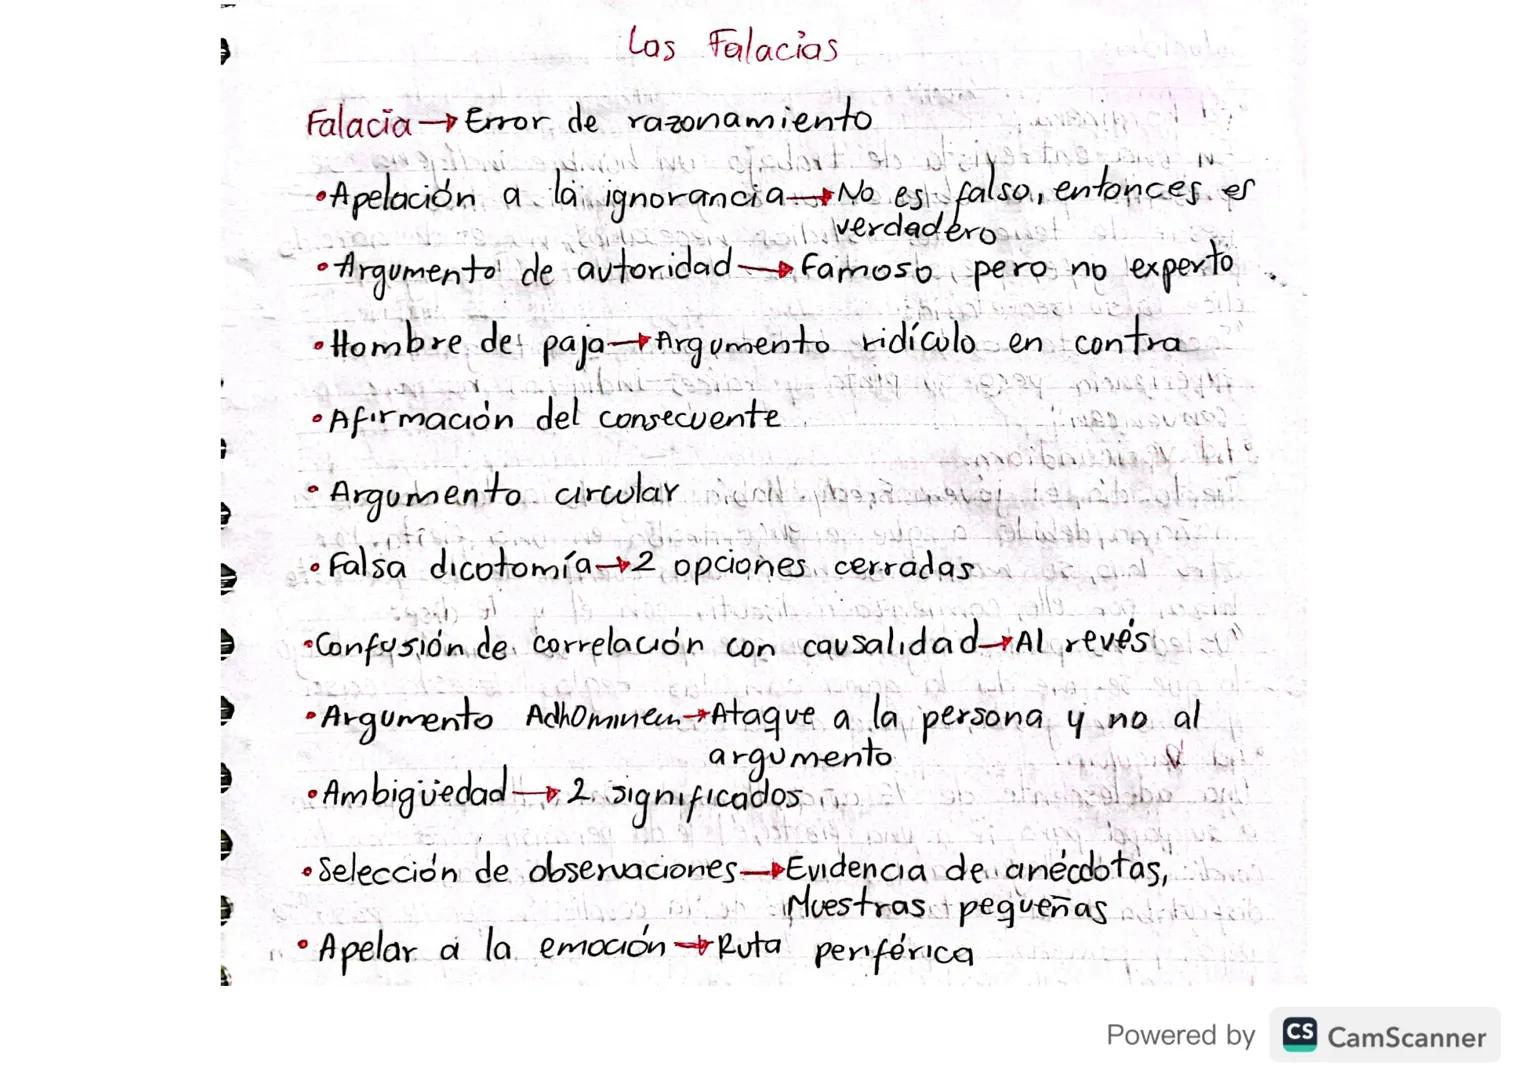 Las Falacias
Falacia→Error de razonamiento
•Apelación a la ignorancia→No es falso, entonces es
verdadero
•Argumento de autoridad→Famoso pero no experto
•Hombre de paja→Argumento ridículo en contra
•Afirmación del consecuente
•Argumento circular
•Falsa dicotomía→2 opciones cerradas
•Confusión de correlación con causalidad→Al revés
•Argumento AdHominem→Ataque a la persona y no al
argumento
•Ambigüedad→2 significados
•Selección de observaciones→Evidencia de anécdotas,
Muestras pequeñas
•Apelar a la emoción→Ruta periférica
Powered by CS CamScanner